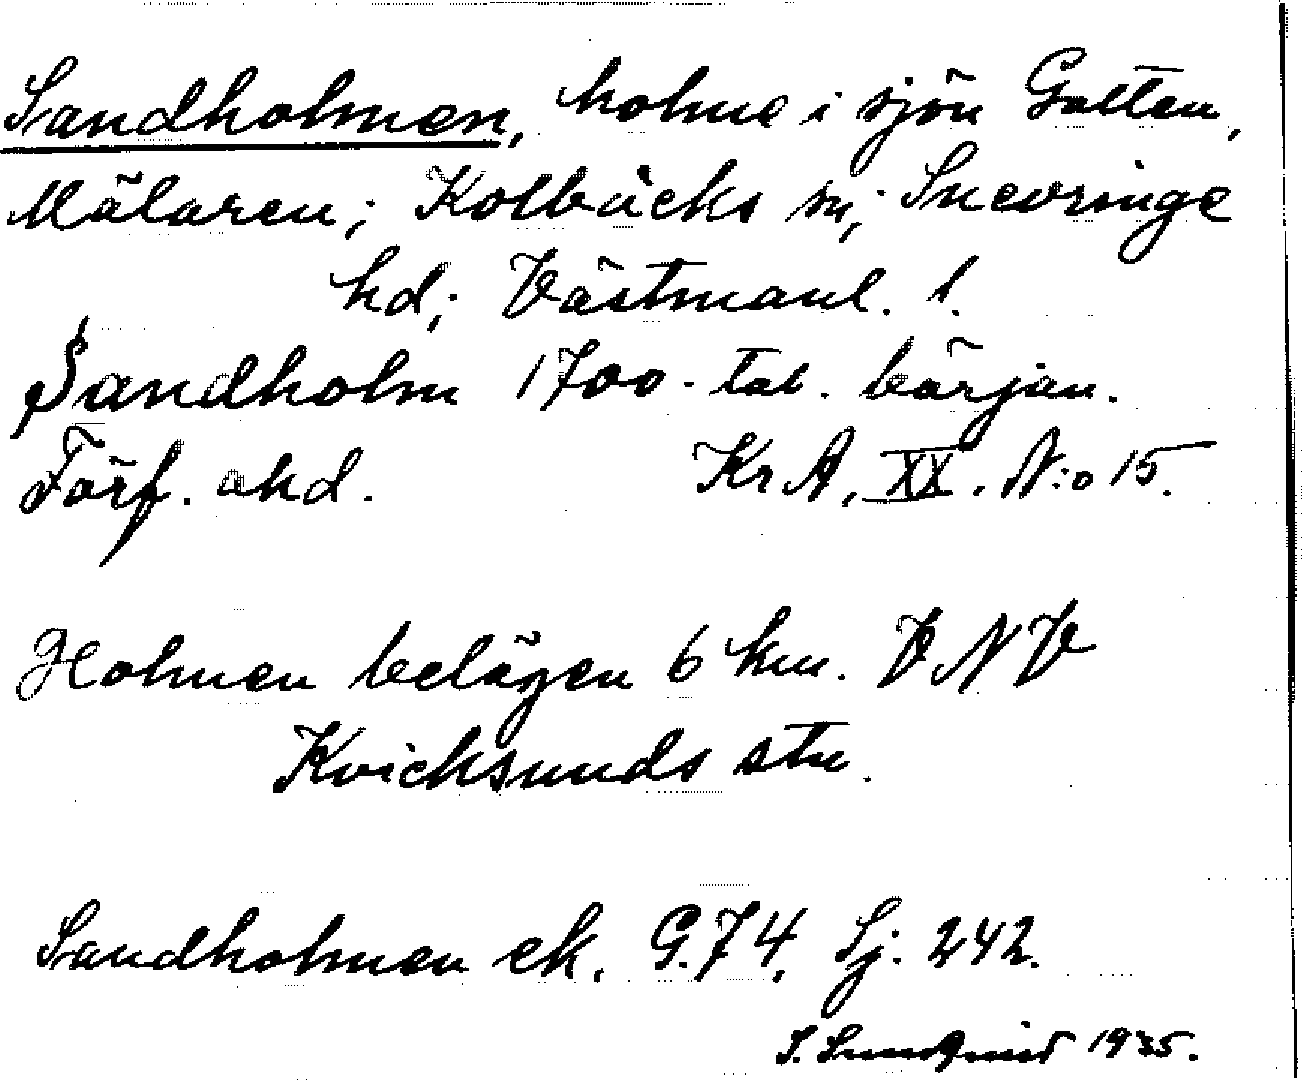 Sandholmen, holme i sjön Galten,
Mälaren; Kolbäcks sn; Snevringe
hd; Västmanl. l.
Sandholm 1700-tal. början.
Förf. okd. KrA, XX. N:o 15.
Holmen belägen 6 km. VNV
Kvicksunds stn.
Sandholmen ek. G.74, Sj. 242.
J. Sundqvist 1935.